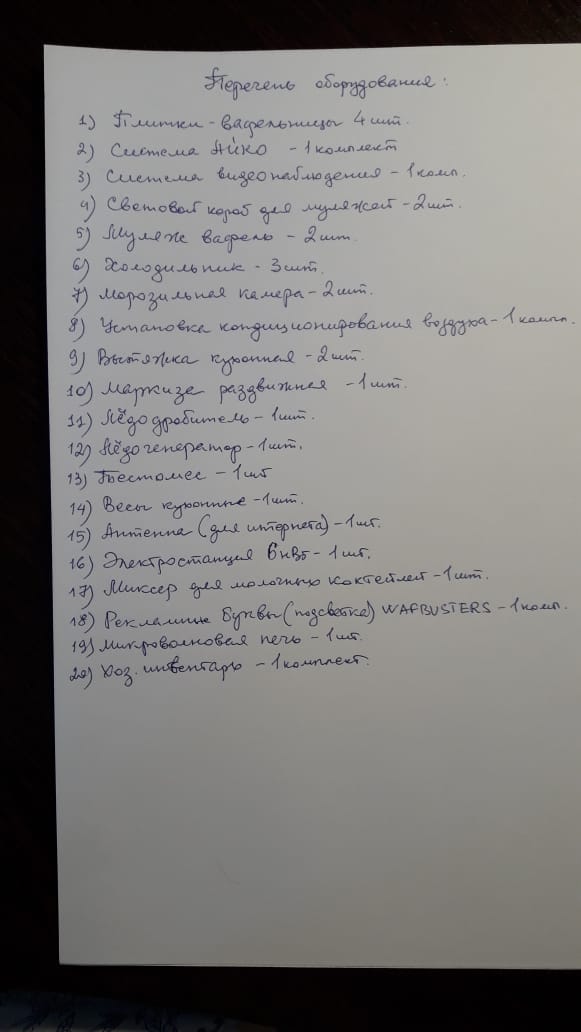 Перечень оборудования:
1) Плитки-вафельницы 4 шт.
2) Система Айко - 1 комплект
3) Система видеонаблюдения - 1 комп.
4) Световой короб для муляжей - 2 шт.
5) Муляж вафель - 2 шт.
6) Холодильник - 3 шт.
7) Морозильная камера - 2 шт.
8) Установка кондиционирования воздуха - 1 комп.
9) Вытяжка кухонная - 2 шт.
10) Маркиза раздвижная - 1 шт.
11) Лёдодробитель - 1 шт.
12) Лёдогенератор - 1 шт.
13) Тестомес - 1 шт
14) Весы кухонные - 1 шт.
15) Антенна (для интернета) - 1 шт.
16) Электростанция 6 кВт - 1 шт.
17) Миксер для молочных коктейлей - 1 шт.
18) Рекламные буквы (подсветка) WAFBUSTERS - 1 комп.
19) Микроволновая печь - 1 шт.
20) Хоз. инвентарь - 1 комплект.